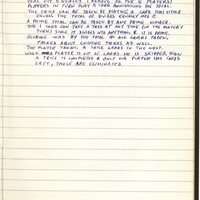 PLAYERS IN TURN PLAY A CARD ANNOUNCING THE TOTAL.
THE TRICK CAN BE TAKEN BY PLAYING A CARD THAT EITHER
EQUALS THE TOTAL OR DIVIDES EXACTLY INTO IT.
A PRIME TOTAL CAN BE TAKEN BY ANY PRIME NUMBER.
THE 1 CARD CAN TAKE A TRICK AT ANY TIME (ON THE PLAYER'S
TURN) SINCE IT DIVIDES INTO ANYTHING & IT IS PRIME.
SCORING WAS BY THE TOTAL OF ALL CARDS TAKEN,
TALKED ABOUT COUNTING TRICKS AS WELL.
THE PLAYER TAKING A TRICK LEADS TO THE NEXT.
WHEN PLAYER IS OUT OF CARDS HE IS SKIPPED, WHEN
A TRICK IS COMPLETED & ONLY ONE PLAYER HAS CARDS
LEFT, THOSE ARE ELIMINATED.